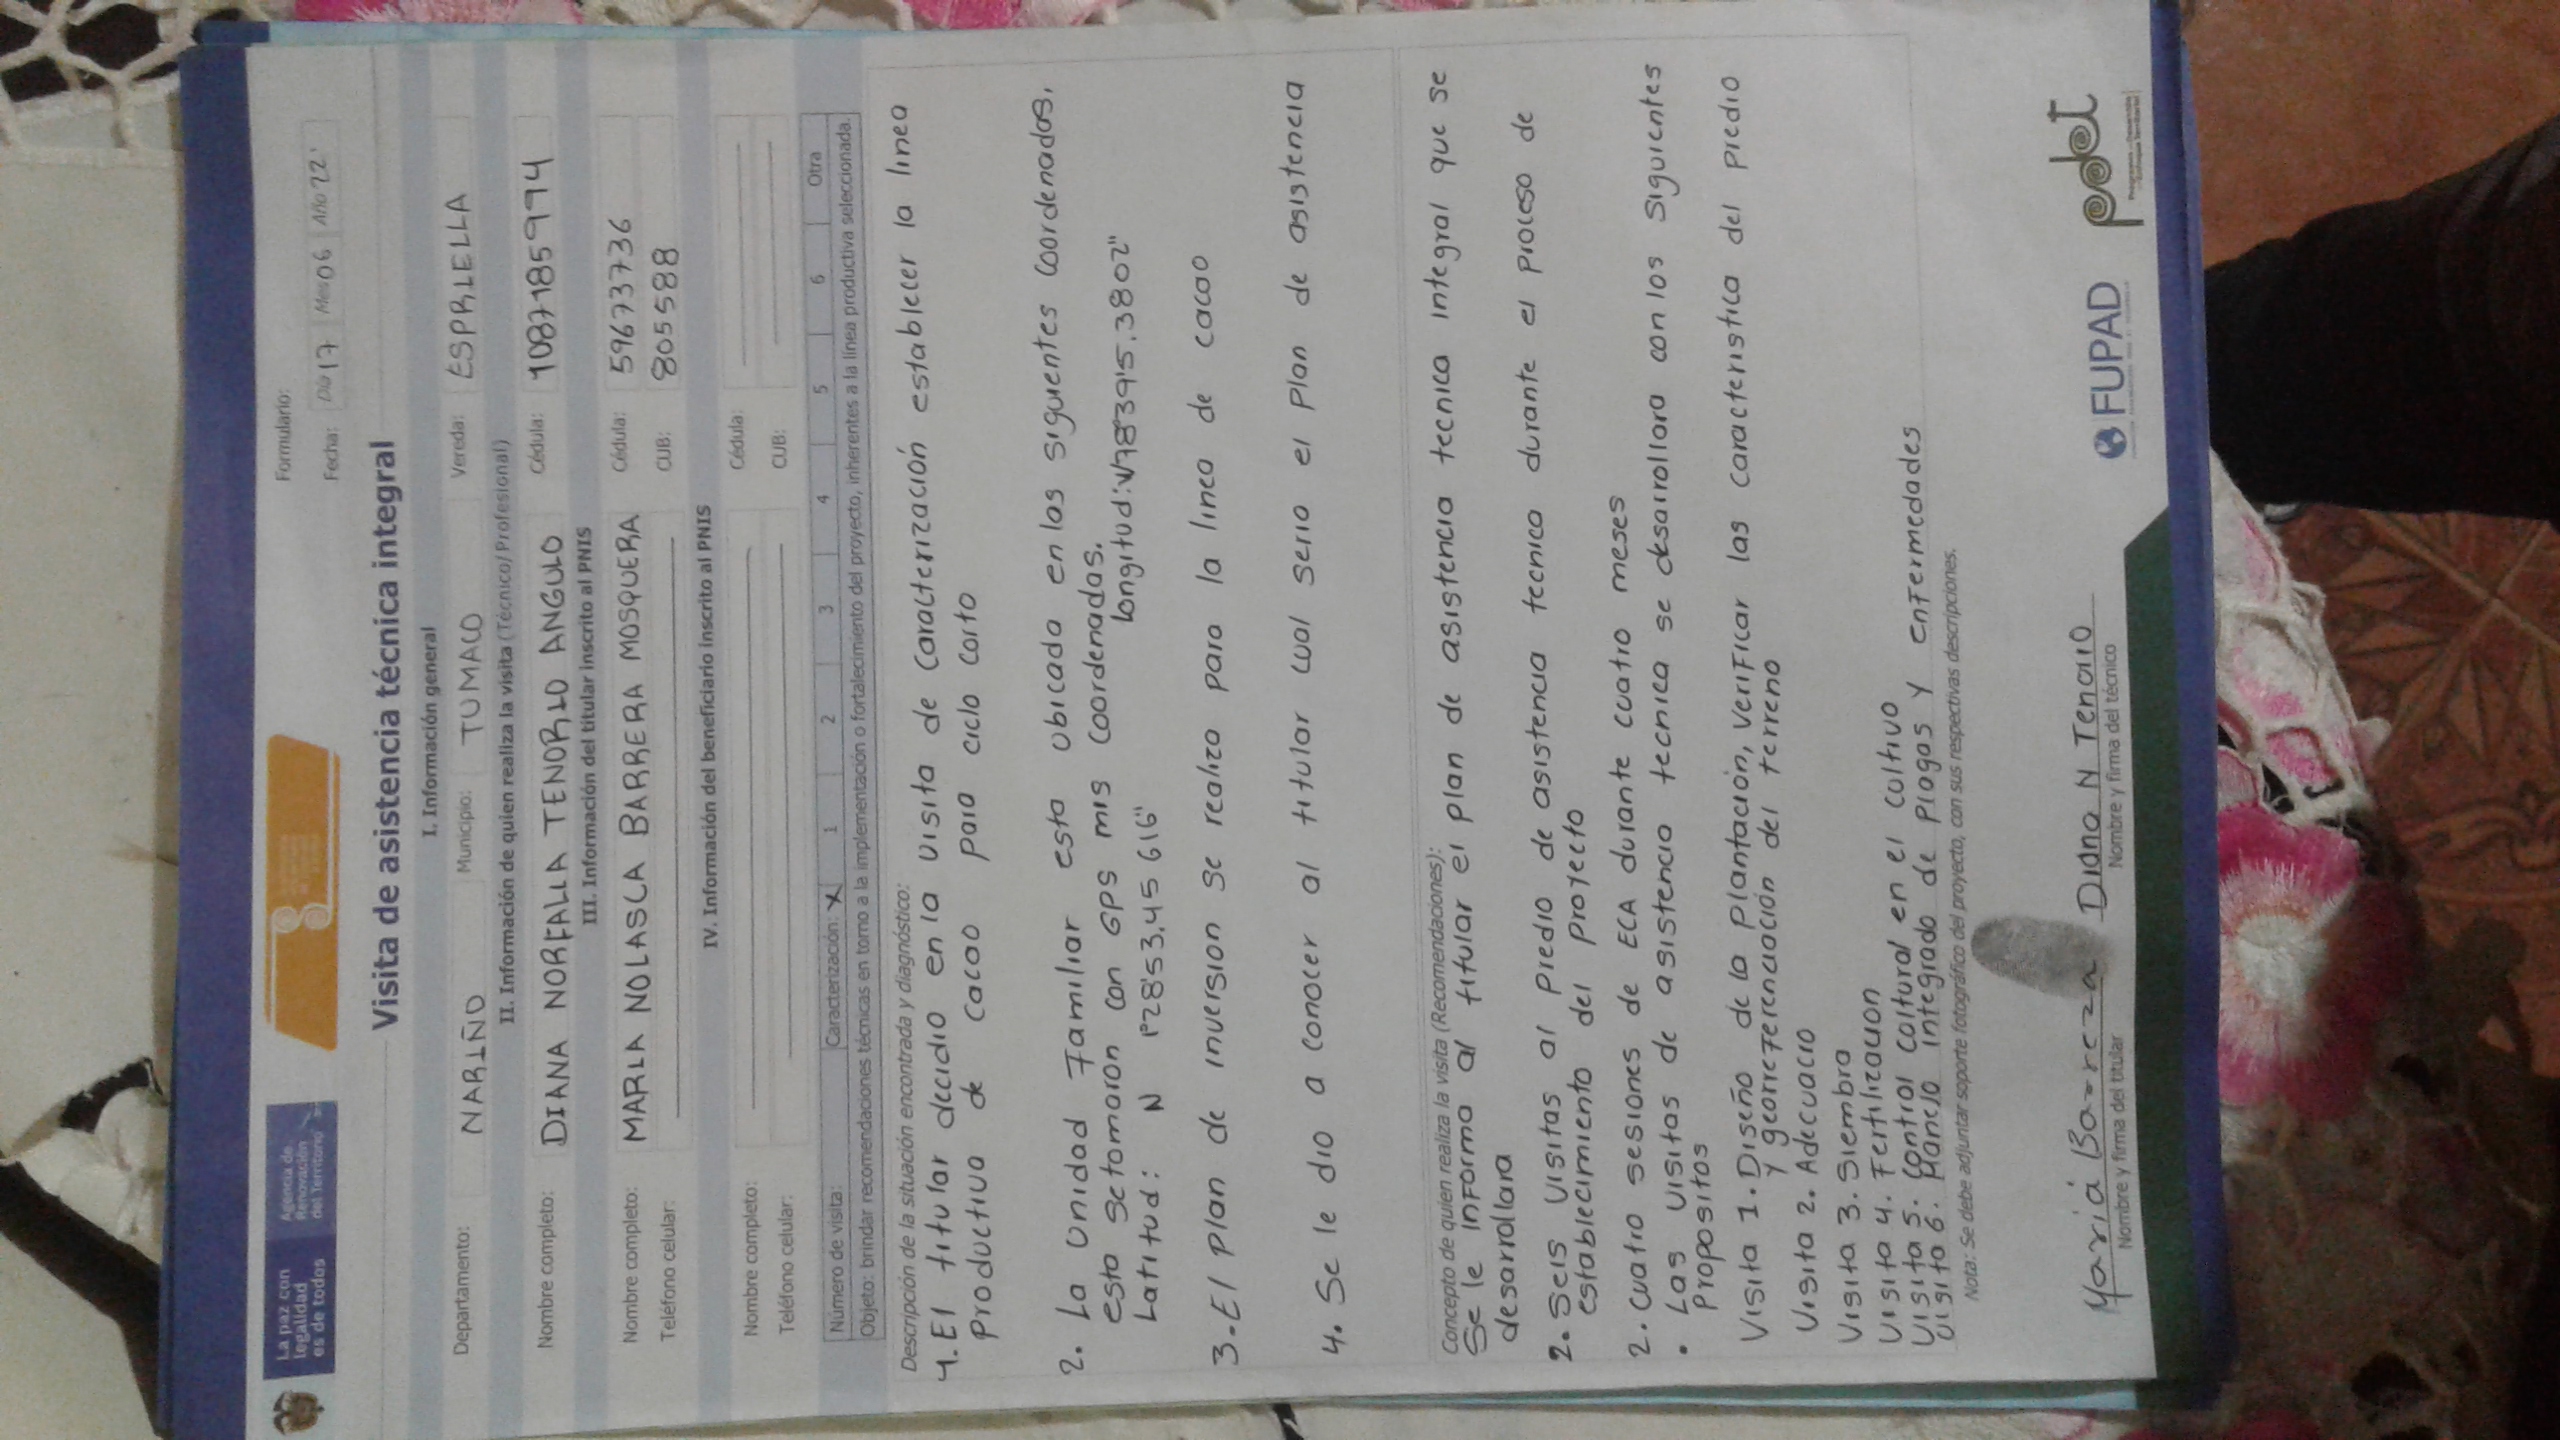 La paz con
legalidad
es de todos
Agencia de
Renovación
del Territorio
Formulario:
Fecha: Día 17 Mes 06 Año 22
Visita de asistencia técnica integral
I. Información general
Departamento: NARIÑO Municipio: TUMACO Vereda: ESPRIELLA
II. Información de quien realiza la visita (Técnico/Profesional)
Nombre completo: DIANA NORFALIA TENORIO ANGULO Cédula: 1087185994
III. Información del titular inscrito al PNIS
Nombre completo: MARIA NOLASCA BARRERA MOSQUERA Cédula: 59673736
Teléfono celular: CUB: 805588
IV. Información del beneficiario inscrito al PNIS
Nombre completo: Cédula:
Teléfono celular: CUB:
Número de visita: Caracterización: X 1 2 3 4 5 6 Otra
Objeto: brindar recomendaciones técnicas en torno a la implementación o fortalecimiento del proyecto, inherentes a la línea productiva seleccionada.
Descripción de la situación encontrada y diagnóstico:
1. El titular decidio en la visita de caracterización establecer la linea
productiva de cacao para ciclo corto
2. La unidad Familiar esta ubicada en las siguentes coordenadas.
esta se tomaron con GPS mis coordenadas.
Latitud: N 1°28'53.45616" Longitud: W78°39'5.3802"
3. El plan de inversion se realizo para la linea de cacao
4. Se le dio a conocer al titular cual serio el plan de asistencia
Concepto de quien realiza la visita (Recomendaciones):
Se le informa al titular el plan de asistencia tecnica integral que se
desarrollara
2. Seis visitas al predio de asistencia tecnica durante el proceso de
establecimiento del proyecto
2. Cuatro sesiones de ECA durante cuatro meses
• Las visitas de asistencia tecnica se desarrollara con los siguientes
propositos
Visita 1. Diseño de la plantación, verificar las caracteristica del predio
y georreferenciación del terreno
Visita 2. Adecuacio
Visita 3. Siembra
Visita 4. Fertilizacion
Visita 5. Control coltural en el cultivo
Visita 6. Manejo integrado de plagas y enfermedades
Nota: Se debe adjuntar soporte fotográfico del proyecto, con sus respectivas descripciones.
Maria Barreza Diana N Tenorio
Nombre y firma del titular Nombre y firma del técnico
FUPAD
pdet